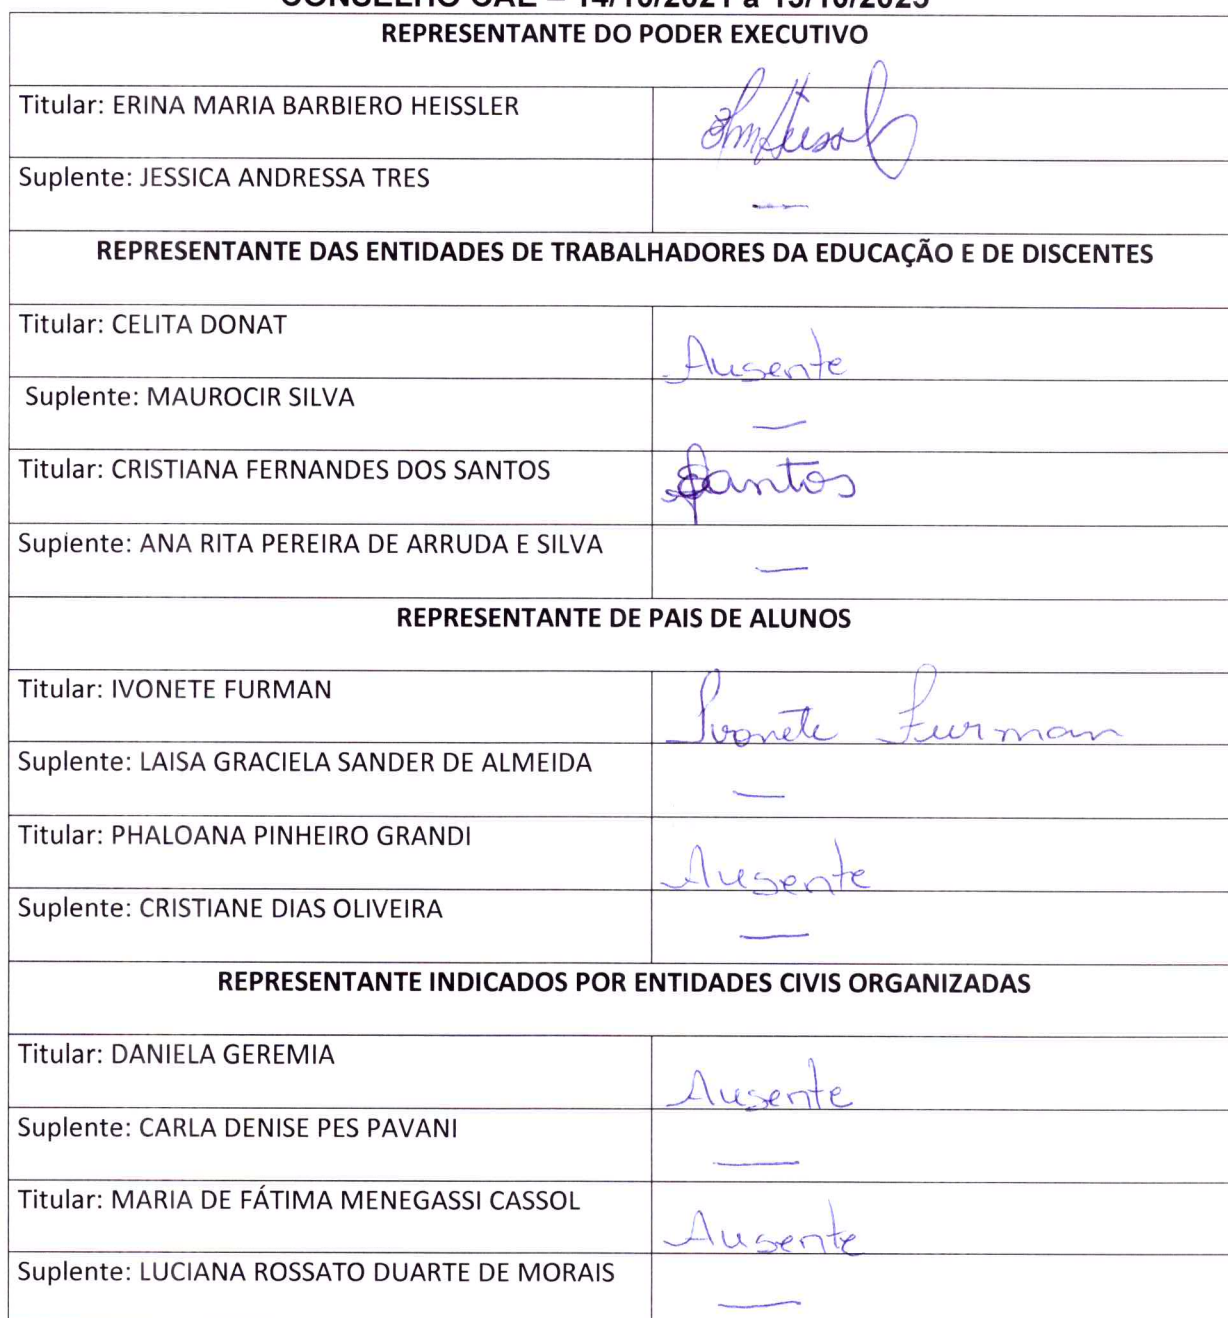 CONSELHO CAE – 14/10/2021 a 13/10/2025
REPRESENTANTE DO PODER EXECUTIVO
Titular: ERINA MARIA BARBIERO HEISSLER
Suplente: JESSICA ANDRESSA TRES
—
REPRESENTANTE DAS ENTIDADES DE TRABALHADORES DA EDUCAÇÃO E DE DISCENTES
Titular: CELITA DONAT
Ausente
Suplente: MAUROCIR SILVA
—
Titular: CRISTIANA FERNANDES DOS SANTOS
Santos
Suplente: ANA RITA PEREIRA DE ARRUDA E SILVA
—
REPRESENTANTE DE PAIS DE ALUNOS
Titular: IVONETE FURMAN
Ivonete Furman
Suplente: LAISA GRACIELA SANDER DE ALMEIDA
—
Titular: PHALOANA PINHEIRO GRANDI
Ausente
Suplente: CRISTIANE DIAS OLIVEIRA
—
REPRESENTANTE INDICADOS POR ENTIDADES CIVIS ORGANIZADAS
Titular: DANIELA GEREMIA
Ausente
Suplente: CARLA DENISE PES PAVANI
—
Titular: MARIA DE FÁTIMA MENEGASSI CASSOL
Ausente
Suplente: LUCIANA ROSSATO DUARTE DE MORAIS
—